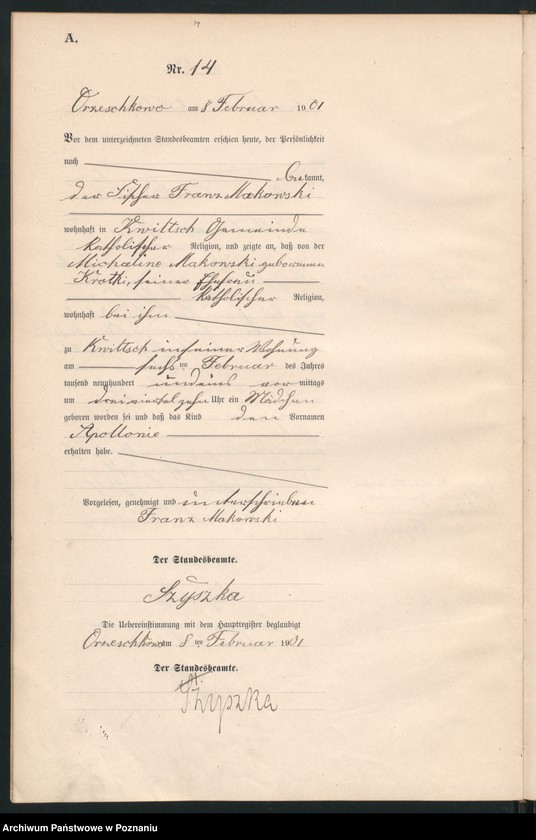 14
A.
Nr. 14
Orzeschkowo am 8 Februar 1901
Vor dem unterzeichneten Standesbeamten erschien heute, der Persönlichkeit
nach
bekannt,
der Tischer Franz Makowski
wohnhaft in Kwiltsch Gemeinde
katholischer Religion, und zeigte an, daß von der
Michaline Makowski geborenen
Krotki, seiner Ehefrau
katholischer Religion,
wohnhaft bei ihm
zu Kwiltsch in seiner Wohnung
am sechsten Februar des Jahres
tausend neunhundert und eins vor mittags
um dreiviertel zehn Uhr ein Mädchen
geboren worden sei und daß das Kind den Vornamen
Apollonie
erhalten habe.
Vorgelesen, genehmigt und unterschrieben
Franz Makowski
Der Standesbeamte.
Szyszka
Die Uebereinstimmung mit dem Hauptregister beglaubigt
Orzeschkowo am 8ten Februar 1901
Der Standesbeamte.
Szyszka
Archiwum Państwowe w Poznaniu